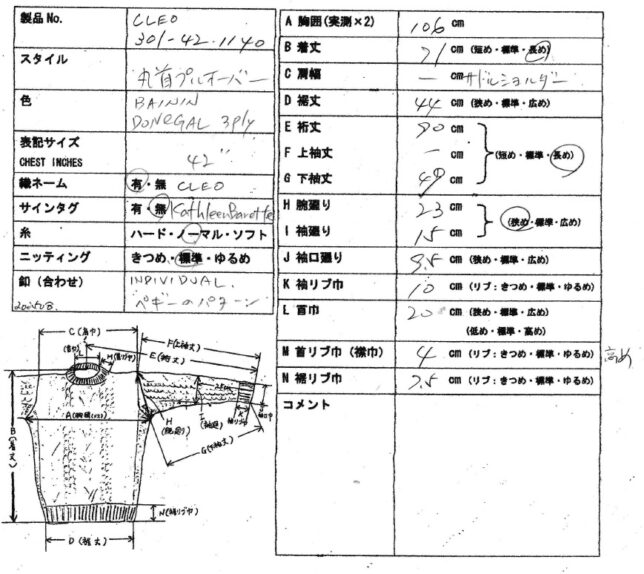 製品No. CLEO
301-42-1140
スタイル 丸首プルオーバー
色 BAININ
DONEGAL 3ply
表記サイズ
CHEST INCHES 42"
織ネーム 有・無 CLEO
サインタグ 有・無 Kathleen
糸 ハード・ノーマル・ソフト
ニッティング きつめ・標準・ゆるめ
釦（合わせ） INDIVIDUAL.
ペギーのパターン
A 胸囲(実測×2) 106 cm
B 着丈 71 cm (短め・標準・長め)
C 肩幅 ー cm サドルショルダー
D 裾丈 44 cm (狭め・標準・広め)
E 裄丈 90 cm
F 上袖丈 ー cm (短め・標準・長め)
G 下袖丈 49 cm
H 腕廻り 23 cm
(狭め・標準・広め)
I 袖廻り 15 cm
J 袖口廻り 9.5 cm (狭め・標準・広め)
K 袖リブ巾 10 cm (リブ：きつめ・標準・ゆるめ)
L 首巾 20 cm (狭め・標準・広め)
(低め・標準・高め)
M 首リブ巾（襟巾） 4 cm (リブ：きつめ・標準・ゆるめ) 高め
N 裾リブ巾 7.5 cm (リブ：きつめ・標準・ゆるめ)
コメント
C(肩巾)
F(上袖丈)
E(裄丈)
L
(首巾)
M(首リブ巾)
A(胸囲×2)
B(着丈)
H
(腕廻り)
I
(袖廻)
K
袖リブ巾
J
袖口巾
G(下袖丈)
N(裾リブ巾)
D(裾丈)